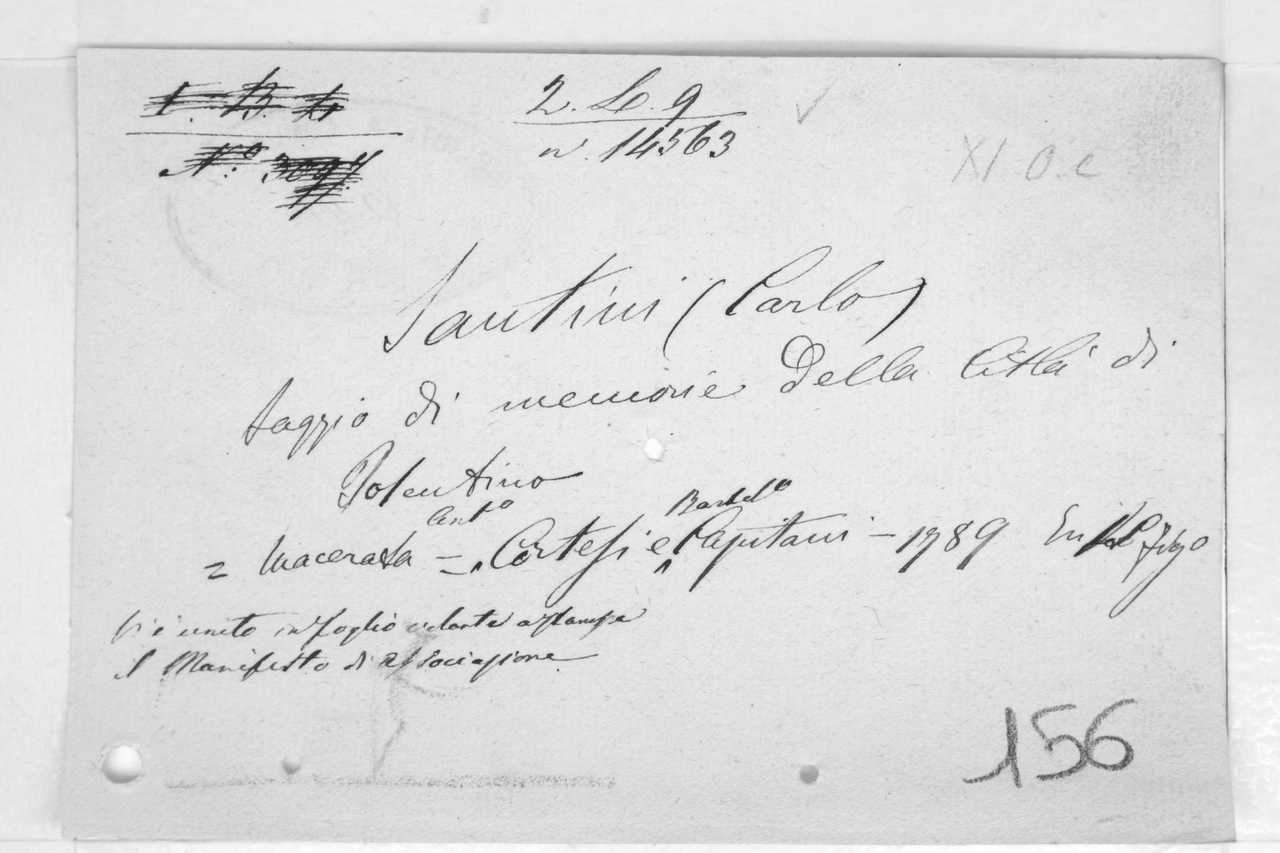 1. B. 4
2. L. 9 ✓
N.° 3097
n. 14563
XI. O. c
Santini (Carlo)
Saggio di memorie della Città di
Tolentino
Ant° Bartol°
= Macerata = Cortesi e Capitani - 1789 In
Vi è unito in foglio volante a stampa
il Manifesto di Associazione
156